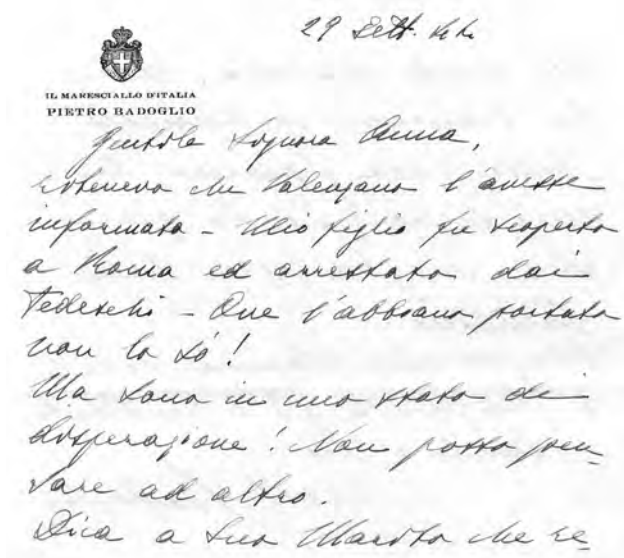 29 Sett. 44
IL MARESCIALLO D'ITALIA
PIETRO BADOGLIO
Gentile Signora Anna,
ritenevo che Valenzano l'avesse
informata - Mio figlio fu scoperto
a Roma ed arrestato dai
Tedeschi - Ove l'abbiano portato
non lo sò!
Ma sono in uno stato di
disperazione! Non posso pen_
sare ad altro.
Dica a Suo Marito che se